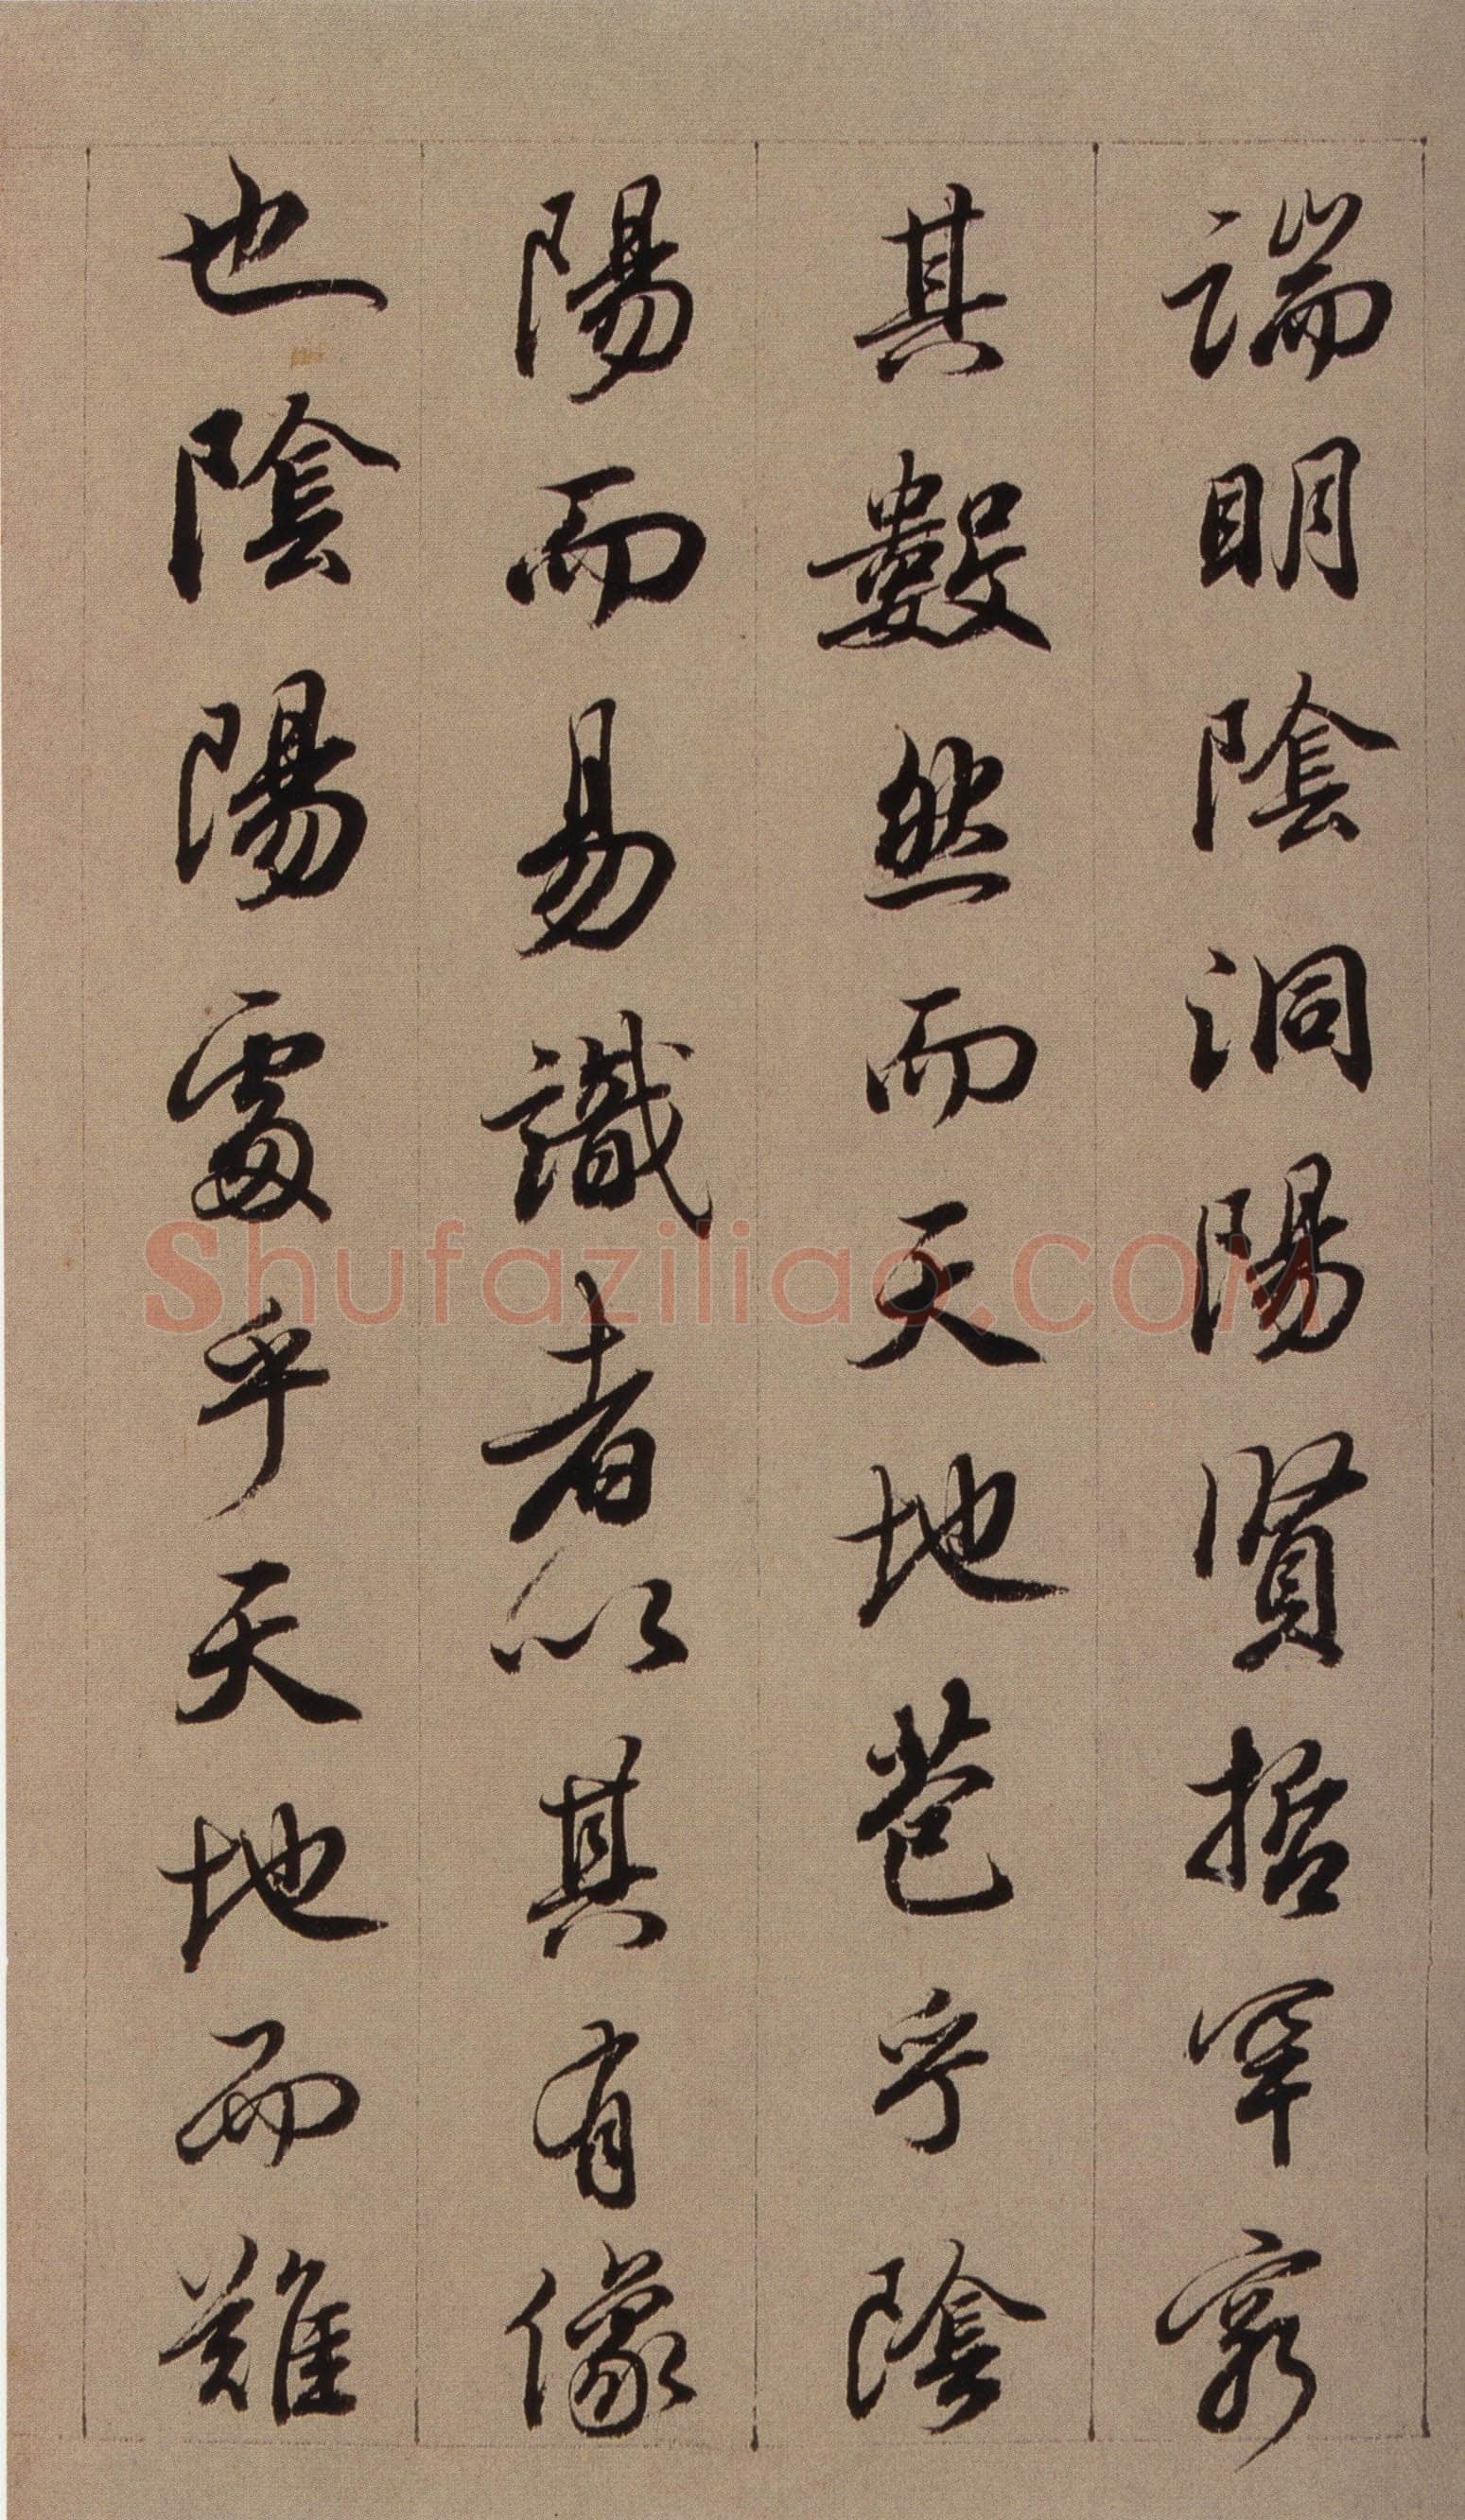 端明陰洞陽賢哲罕窮
其數然而天地苞乎陰
陽而易識者以其有像
也陰陽處乎天地而難
Shufaziliao.COM